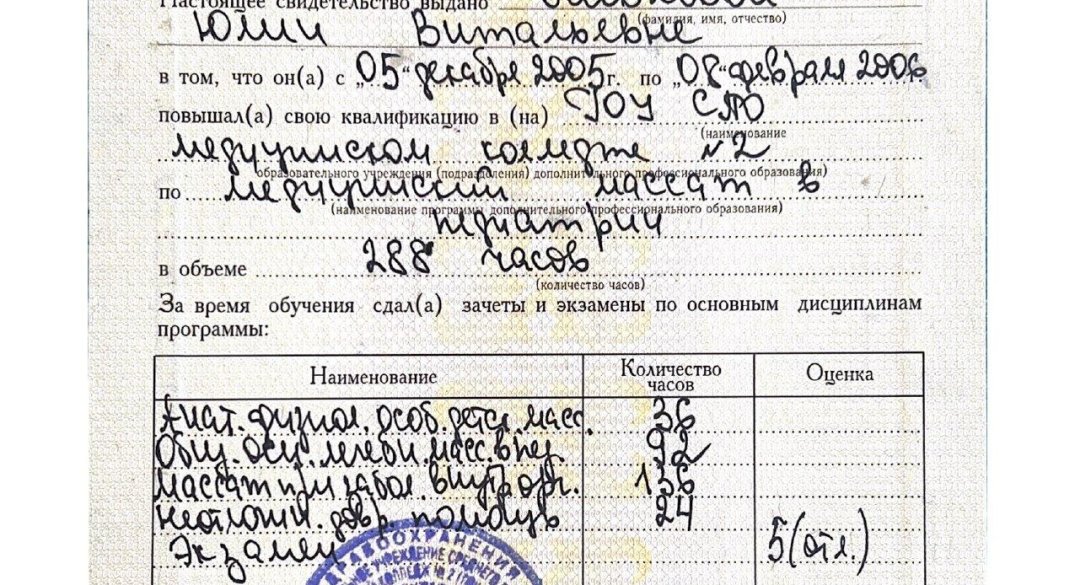 Настоящее свидетельство выдано
(фамилия, имя, отчество)
Юлии Витальевне
в том, что он(а) с „05“ декабря 2005г. по „08“ февраля 2006
повышал(а) свою квалификацию в (на) ГОУ СПО
(наименование
медицинском колледже №2
образовательного учреждения (подразделения) дополнительного профессионального образования)
по медицинский массаж в
(наименование программы дополнительного профессионального образования)
педиатрии
в объеме 288 часов
(количество часов)
За время обучения сдал(а) зачеты и экзамены по основным дисциплинам
программы:
Наименование Количество часов Оценка
Анат. физиол. особ. детск. масс. 36
Общ. осн. лечебн. масс. в пед. 92
Массаж при забол. внутр. орг. 136
Неотложн. довр. помощь 24
Экзамен 5 (отл.)
ЗДРАВООХРАНЕНИЯ
УЧРЕЖДЕНИЕ СРЕДНЕГО
КОЛЛЕДЖ № 2